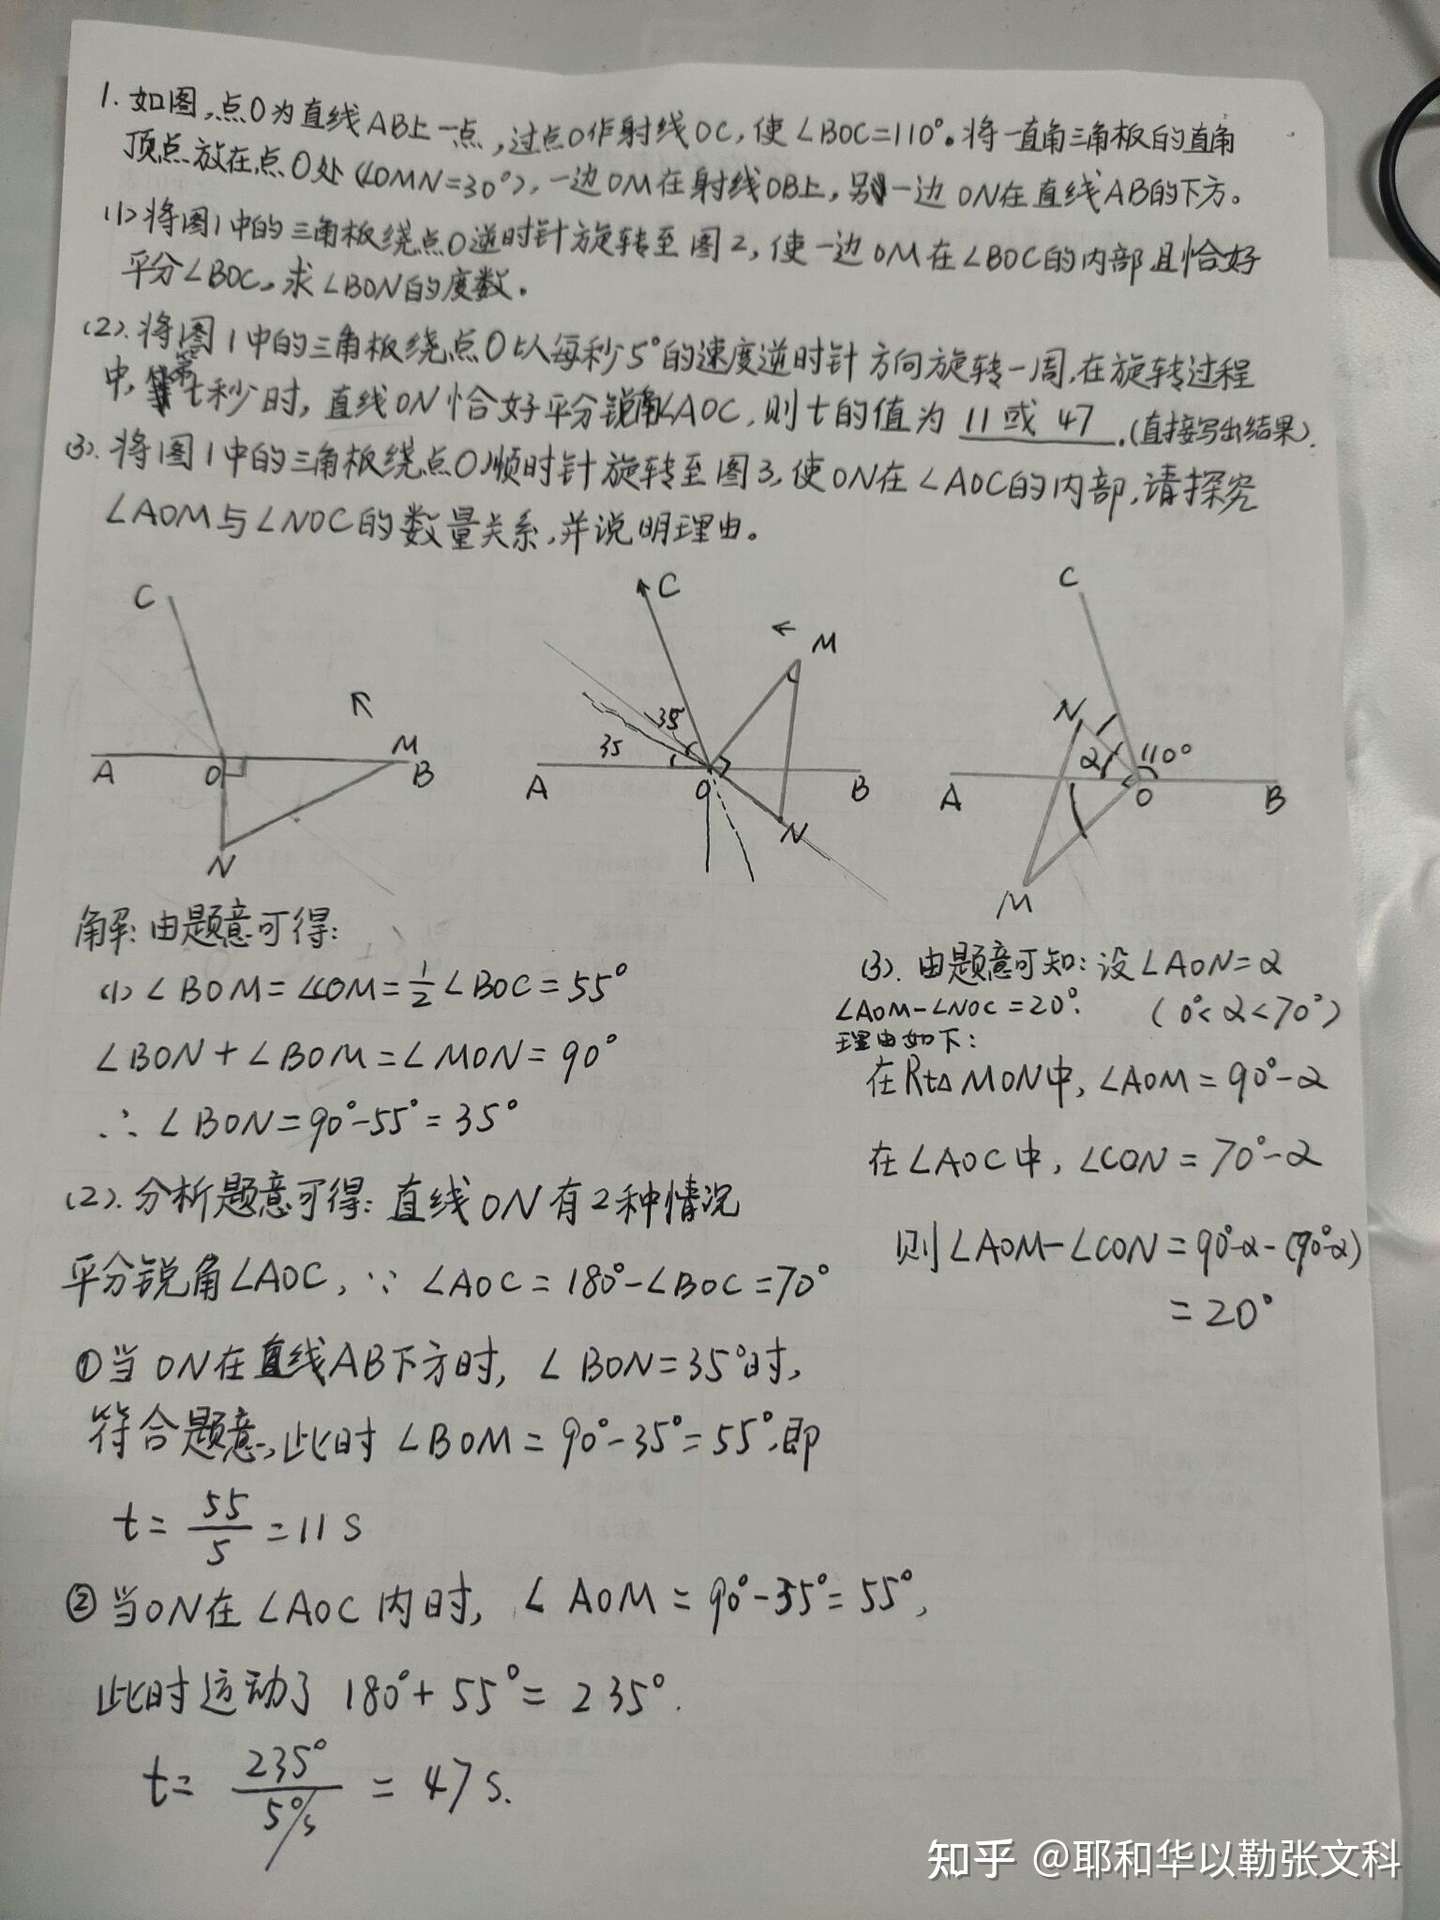 1. 如图,点O为直线AB上一点,过点O作射线OC,使∠BOC=110°。将一直角三角板的直角
顶点放在点O处(∠OMN=30°),一边OM在射线OB上,另一边ON在直线AB的下方。
(1)将图1中的三角板绕点O逆时针旋转至图2,使一边OM在∠BOC的内部且恰好
平分∠BOC。求∠BON的度数.
(2).将图1中的三角板绕点O以每秒5°的速度逆时针方向旋转一周,在旋转过程
中,第t秒时,直线ON恰好平分锐角∠AOC,则t的值为 11或 47 .(直接写出结果).
(3).将图1中的三角板绕点O顺时针旋转至图3,使ON在∠AOC的内部,请探究
∠AOM与∠NOC的数量关系,并说明理由。
C
A
O
M
B
N
C
M
35
35
A
O
B
N
C
N
α
110°
A
O
B
M
解:由题意可得:
(1) ∠BOM=∠COM=1/2∠BOC=55°
∠BON+∠BOM=∠MON=90°
∴∠BON=90°-55°=35°
(2).分析题意可得:直线ON有2种情况
平分锐角∠AOC,∵∠AOC=180°-∠BOC=70°
①当ON在直线AB下方时,∠BON=35°时,
符合题意,此时∠BOM=90°-35°=55°,即
t=55/5=11s
②当ON在∠AOC内时,∠AOM=90°-35°=55°,
此时运动了180°+55°=235°.
t=235°/5°/s=47s.
(3).由题意可知:设∠AON=α
∠AOM-∠NOC=20°. (0°<α<70°)
理由如下:
在Rt△MON中,∠AOM=90°-α
在∠AOC中,∠CON=70°-α
则∠AOM-∠CON=90°-α-(70°-α)
=20°
知乎 @耶和华以勒张文科